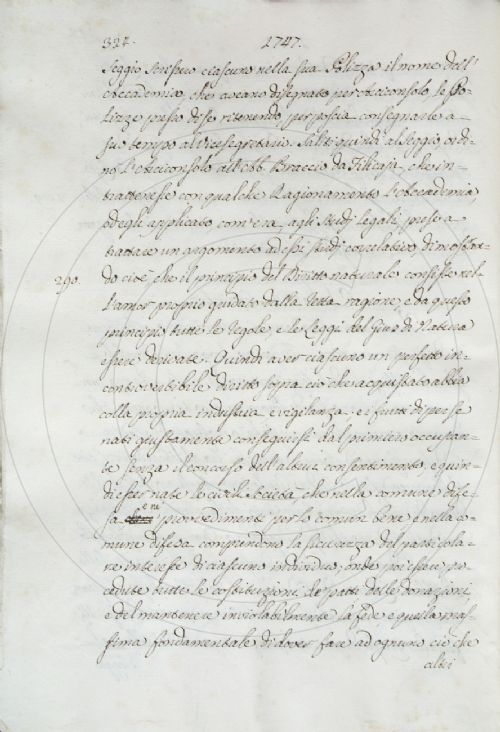 324. 1747.
Seggio scrisse ciascuno nella sua Polizza il nome dell'
Accademico, che aveano disegnato per Arciconsolo, le Po-
lizze presso di se ritenendo, per poscia consegnarle a
suo tempo al Vicesegretario. Saliti quindi al seggio, ordi-
nò l'Arciconsolo all'Ab. Braccio da Filicaja, che in-
trattenesse con qualche Ragionamento l'Accademia
ed egli applicato com'era, agli studj legali, prese a
trattare un argomento ad essi studj correlativo, dimostran-
290. do cioè che il principio del Diritto naturale consiste nel-
l'amor proprio guidato dalla retta ragione, e da questo
principio tutte le regole, e le Leggi del Gius di Natura
essere derivate. Quindi aver ciascuno un perfetto in-
controvertibile diritto sopra ciò che acquistato abbia
colla propria industria e vigilanza: e i frutti di per se
nati giustamente conseguirsi dal primiero occupan-
te senza il concorso dell'altrui consentimento, e quin-
di esser nate le civili Società, che nella comune dife-
sa e ne' provvedimenti per lo comun bene e nella co-
mune difesa comprendono la sicurezza del particola-
re interesse di ciascuno individuo, onde poi essere pro-
cedute tutte le costituzioni de' patti delle donazioni
e del mantenere inviolabilmente la fede e quella mas-
sima fondamentale di dover fare ad ognuno ciò che
altri